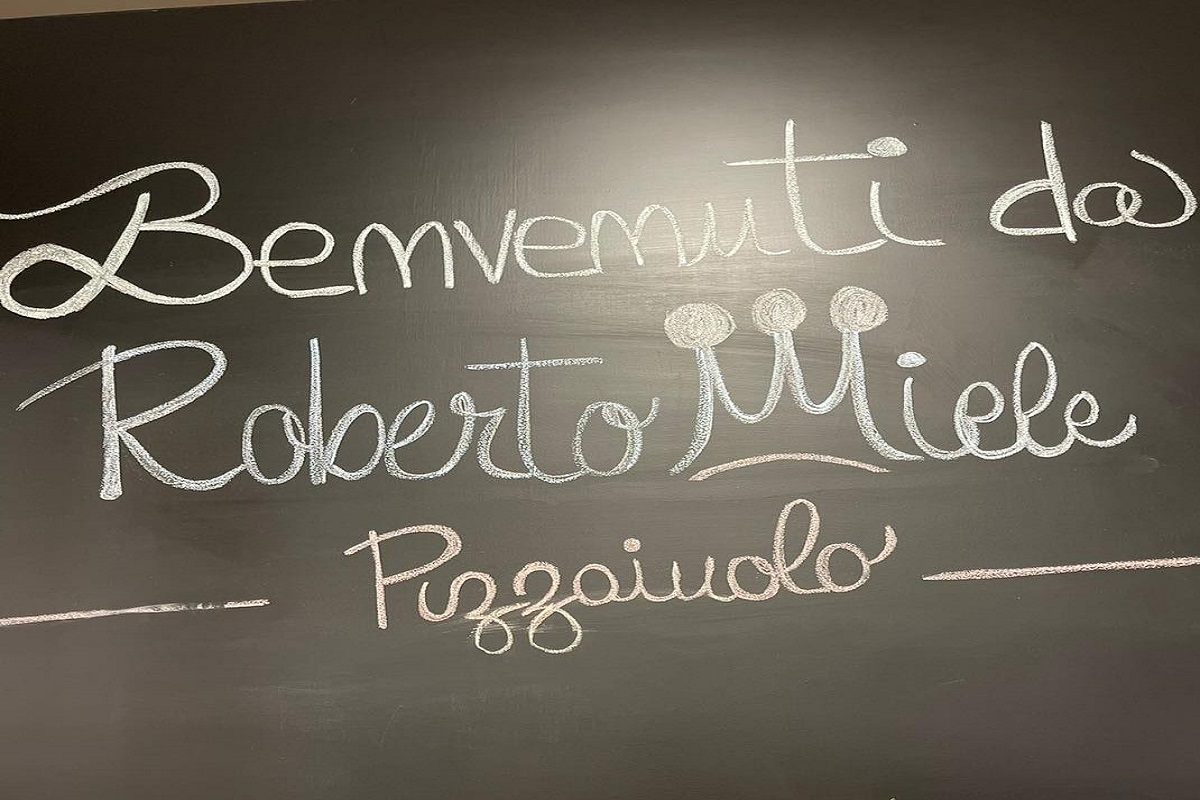 Benvenuti da
Roberto Miele
Pizzaiuolo